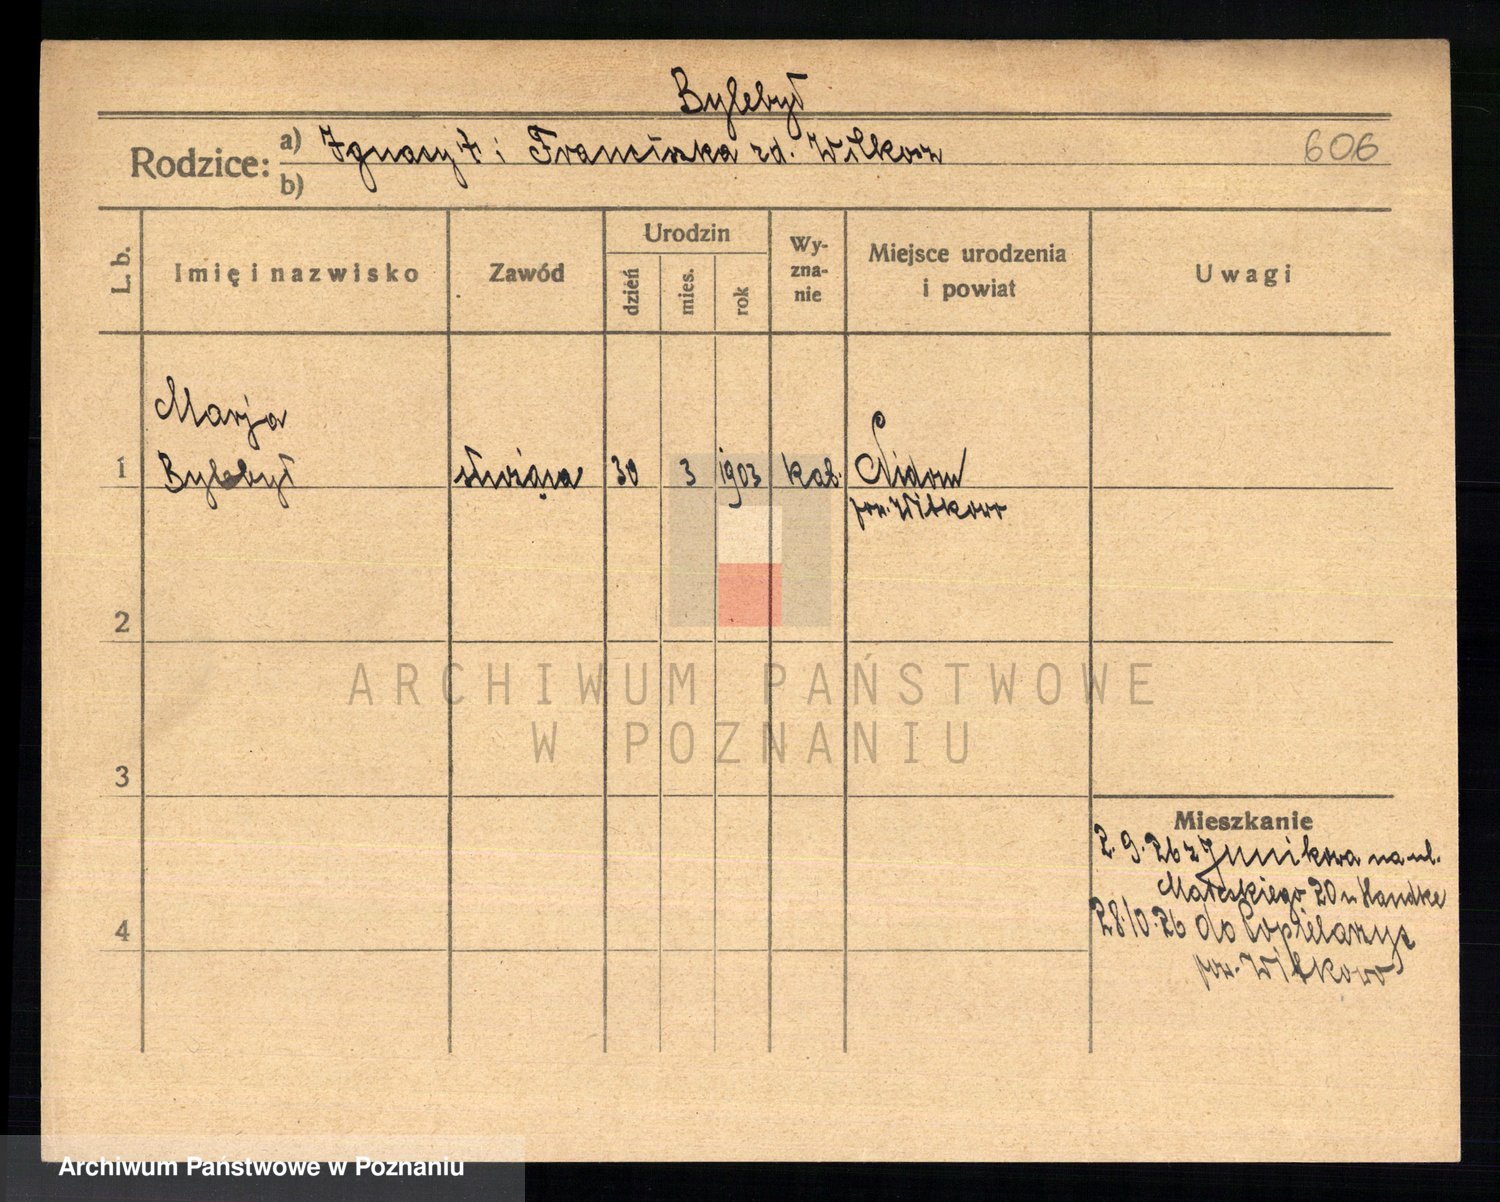 Bylebył
606
Rodzice: a) Ignacy † i Franciszka rd. Wilkosz
b)
L. b.
Imię i nazwisko
Zawód
Urodzin
dzień
mies.
rok
Wy-
zna-
nie
Miejsce urodzenia
i powiat
Uwagi
Marja
1 Bylebył służąca 30 3 1903 kat. Nidom
pow. Witkowo
2
3
4
Mieszkanie
2.9.26 z Junikowa na ul.
Małeckiego 20 u Handke
28.10.26 do
pow. Witkowo
ARCHIWUM PAŃSTWOWE
W POZNANIU
Archiwum Państwowe w Poznaniu